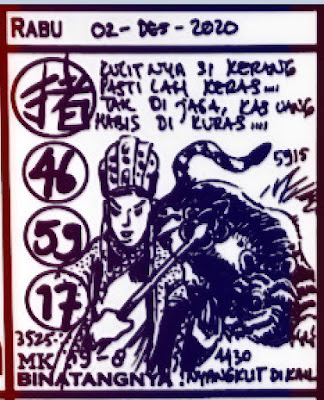 RABU 02-DES-2020
KULITNYA SI KERANG
PASTI LAH KERAS....
TAK DI JAGA, KAS UANG
HABIS DI KURAS....
猪
5915
46
59
17
3525
MK 19-8
4430
BINATANGNYA : NYANGKUT DI KAIL